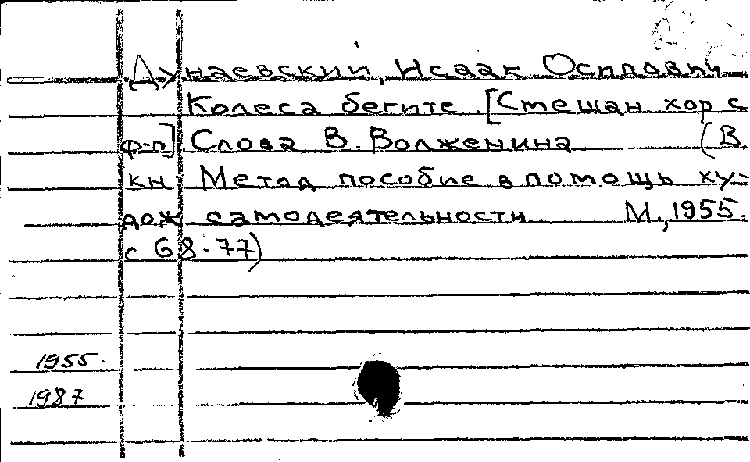 Дунаевский, Исаак Осипович
Колеса бегите [Смешан хор с
ф-п] Слова В. Волженина (В
кн Метод пособие в помощь ху-
дож самодеятельности М., 1955.
с 68-77)
1955.
1987